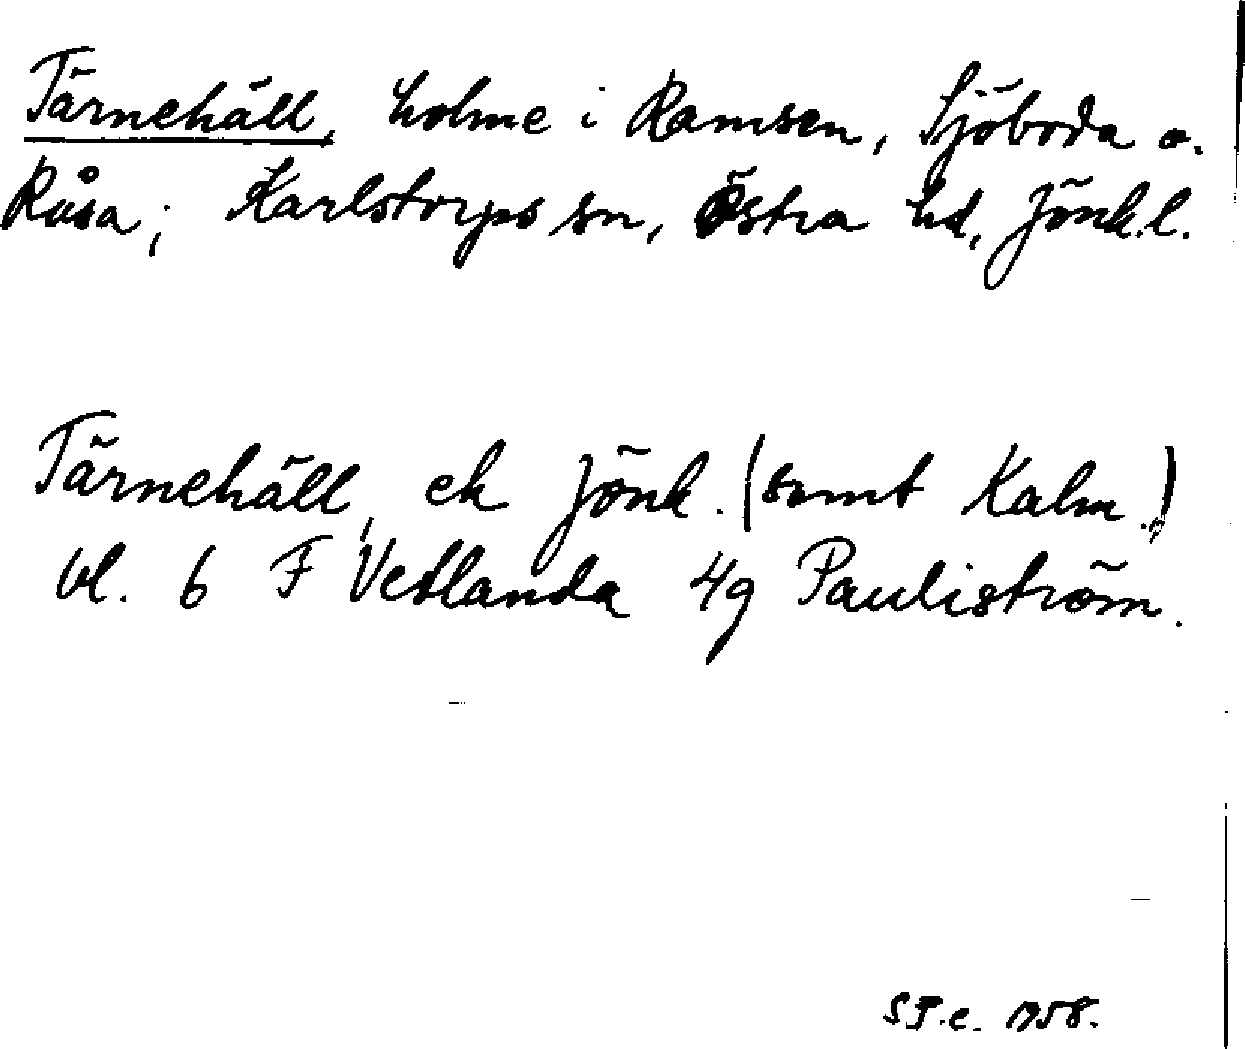 Tärnehäll, holme i Ramsen, Sjöboda o.
Råsa; Karlstorps sn, Östra hd, Jönk.l.
Tärnehäll, ek Jönk. (samt Kalm.)
bl. 6 F Vetlanda 4g Pauliström.
1958.